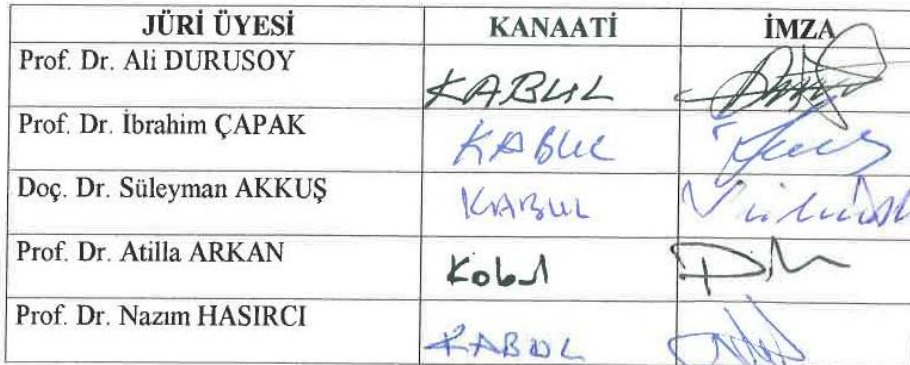 JÜRİ ÜYESİ KANAATİ İMZA
Prof. Dr. Ali DURUSOY KABUL
Prof. Dr. İbrahim ÇAPAK KABUL
Doç. Dr. Süleyman AKKUŞ KABUL
Prof. Dr. Atilla ARKAN Kabul
Prof. Dr. Nazım HASIRCI KABUL